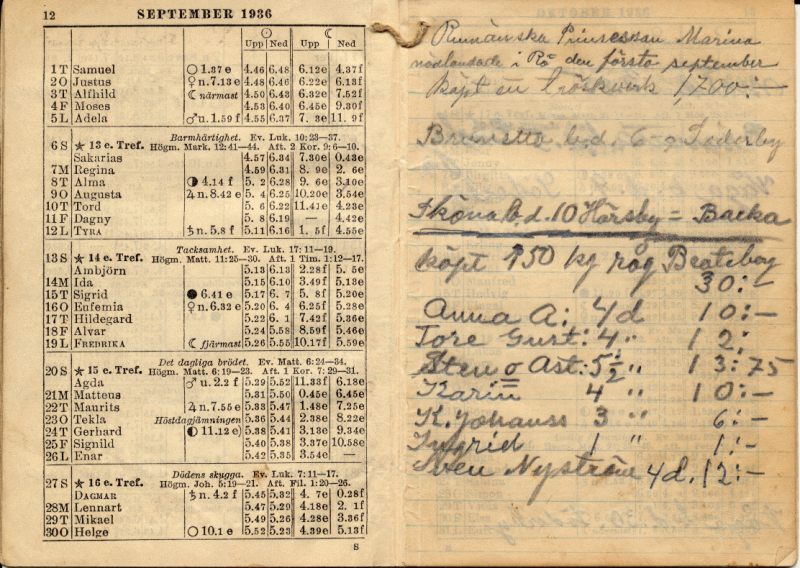 12 SEPTEMBER 1936
☉ ☾
Upp Ned Upp Ned
1 T Samuel ○ 1.37 e 4.46 6.48 6.12e 4.37f
2 O Justus ♀ n. 7.13 e 4.48 6.46 6.22e 6.13f
3 T Alfhild ☾ närmast 4.50 6.43 6.32e 7.52f
4 F Moses 4.53 6.40 6.45e 9.30f
5 L Adela ♂ u. 1.59 f 4.55 6.37 7. 3e 11. 9f
6 S ★ 13 e. Tref. Barmhärtighet. Ev. Luk. 10:23—37.
Högm. Mark. 12:41—44. Aft. 2 Kor. 9:6—10.
Sakarias 4.57 6.34 7.30e 0.43e
7 M Regina 4.59 6.31 8. 9e 2. 6e
8 T Alma ◑ 4.14 f 5. 2 6.28 9. 6e 3.10e
9 O Augusta ♃ n. 8.42 e 5. 4 6.25 10.20e 3.54e
10 T Tord 5. 6 6.22 11.41e 4.23e
11 F Dagny 5. 8 6.19 — 4.42e
12 L TYRA ♄ n. 5.8 f 5.11 6.16 1. 5f 4.55e
13 S ★ 14 e. Tref. Tacksamhet. Ev. Luk. 17:11—19.
Högm. Matt. 11:25—30. Aft. 1 Tim. 1:12—17.
Ambjörn 5.13 6.13 2.28f 5. 5e
14 M Ida 5.15 6.10 3.49f 5.13e
15 T Sigrid ● 6.41 e 5.17 6. 7 5. 8f 5.20e
16 O Eufemia ♀ n. 6.32 e 5.20 6. 4 6.25f 5.28e
17 T Hildegard 5.22 6. 1 7.42f 5.36e
18 F Alvar 5.24 5.58 8.59f 5.46e
19 L FREDRIKA ☾ fjärmast 5.26 5.55 10.17f 5.59e
20 S ★ 15 e. Tref. Det dagliga brödet. Ev. Matt. 6:24—34.
Högm. Matt. 6:19—23. Aft. 1 Kor. 7:29—31.
Agda ♂ u. 2.2 f 5.29 5.52 11.33f 6.18e
21 M Matteus 5.31 5.50 0.45e 6.45e
22 T Maurits ♃ n. 7.55 e 5.33 5.47 1.48e 7.25e
23 O Tekla Höstdagjämningen 5.36 5.44 2.38e 8.22e
24 T Gerhard ◐ 11.12 e 5.38 5.41 3.13e 9.34e
25 F Signild 5.40 5.38 3.37e 10.58e
26 L Enar 5.42 5.35 3.54e —
27 S ★ 16 e. Tref. Dödens skugga. Ev. Luk. 7:11—17.
Högm. Joh. 5:19—21. Aft. Fil. 1:20—26.
DAGMAR ♄ n. 4.2 f 5.45 5.32 4. 7e 0.28f
28 M Lennart 5.47 5.29 4.18e 2. 1f
29 T Mikael 5.49 5.26 4.28e 3.36f
30 O Helge ○ 10.1 e 5.52 5.23 4.39e 5.13f
8
Rumänska Prinsessan Marina
nödlandade i Rö den första september
köpt en tröskverk 1,700:—
Brunetta b.d. 6-9 Söderby
Sköna b.d. 10 Hårsby = Backa
köpt 150 kg råg Beateborg
30:—
Anna A: 4 d 10:—
Tore Gust: 4 " 12:
Sten o Ast: 5½ " 13:75
Karin 4 " 10:—
K. Johanss 3 " 6:—
Ingrid 1 " 1:—
Sven Nyström 4 d. 12:—